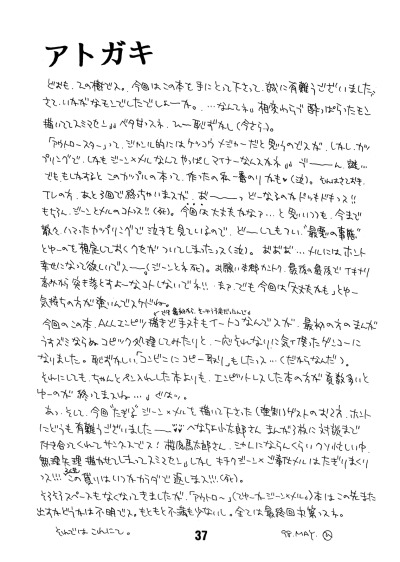 アトガキ
どおも、この権でス。今回はこの本を手にとって下さって、誠に有難うございました。
さて、いかがなモンでしたでしょーか。…なんてネ。相変わらず酔っぱらったモン
描いててスミマセン ベタ甘っスネ。ひー恥ずかし(今さら)。
「アウトロースター」って、ジャンル的にはケッコウメジャーだと思うのでスが、しかし、カッ
プリングで、しかもジーン×メルなんてやっぱしマイナーなんスかネ で——ん。誰…
でもともかくすると このカップルの本って、作ったの私一番のりかも(泣)。それはさておき、
TVの方、あと3回で終っちゃいまスが、お——っ。どーなるのかドッキドキっス!!
もちろん、ジーンとメルのコトっス!!(死)。今回は大丈夫かな?…と思いつつも、今まで
散々ハマったカップリングで泣きを見ているので、ど——してもつい "最悪の事態"
とゆーのも想定しておくクセがついてしまったっス(泣)。おおお…メルにはホント
幸せになって欲しいでスー(ジーンとネ 死)。お願い本郷カントク、最後の最後でイキナリ
高みから突き落とすよーなコトしないで!! …まァ、でも今回は「大丈夫かも」とゆー
気持ちの方が強いんでスケドね。
今回のこの本、ALLエンピツ描きで手ヌキもイートコなんでスが、最初の方のまんが
うすズミならぬコピック処理してみたりと、一応それなりに気で使ったゲンコーに
なりました。恥ずかしい「コンビニにコピー取り」もしたっス…(だからなんだ)。
それにしても、ちゃんとペン入れした本よりも、エンピツトレスした本の方が頁数多いと
ゆーのが 終ってまスね…
あっ、そして、今回 "たぎる"ジーン×メルを描いて下さった(強制)ゲストのお2方、ホント
にどうも有難うございました—— べなちょ小太郎さん まんが3枚に対談まで
付き合ってくれてサンクスでス! 
無理矢理描かせてしまってスミマセン しかし キチクジーン×ご奉仕メルはたぎりまくり
っス!!! この借りはいつかカラダで返しまス!!!(死)。
そろそろスペースもなくなってきましたが、「アウトロー」(でゆーかジーン×メル)本はこの先また
出すかどうかは不明でス。もともと不痛も少ないし。全ては最終回次第っスネ。
それでは これにて。
37
98.MAY.